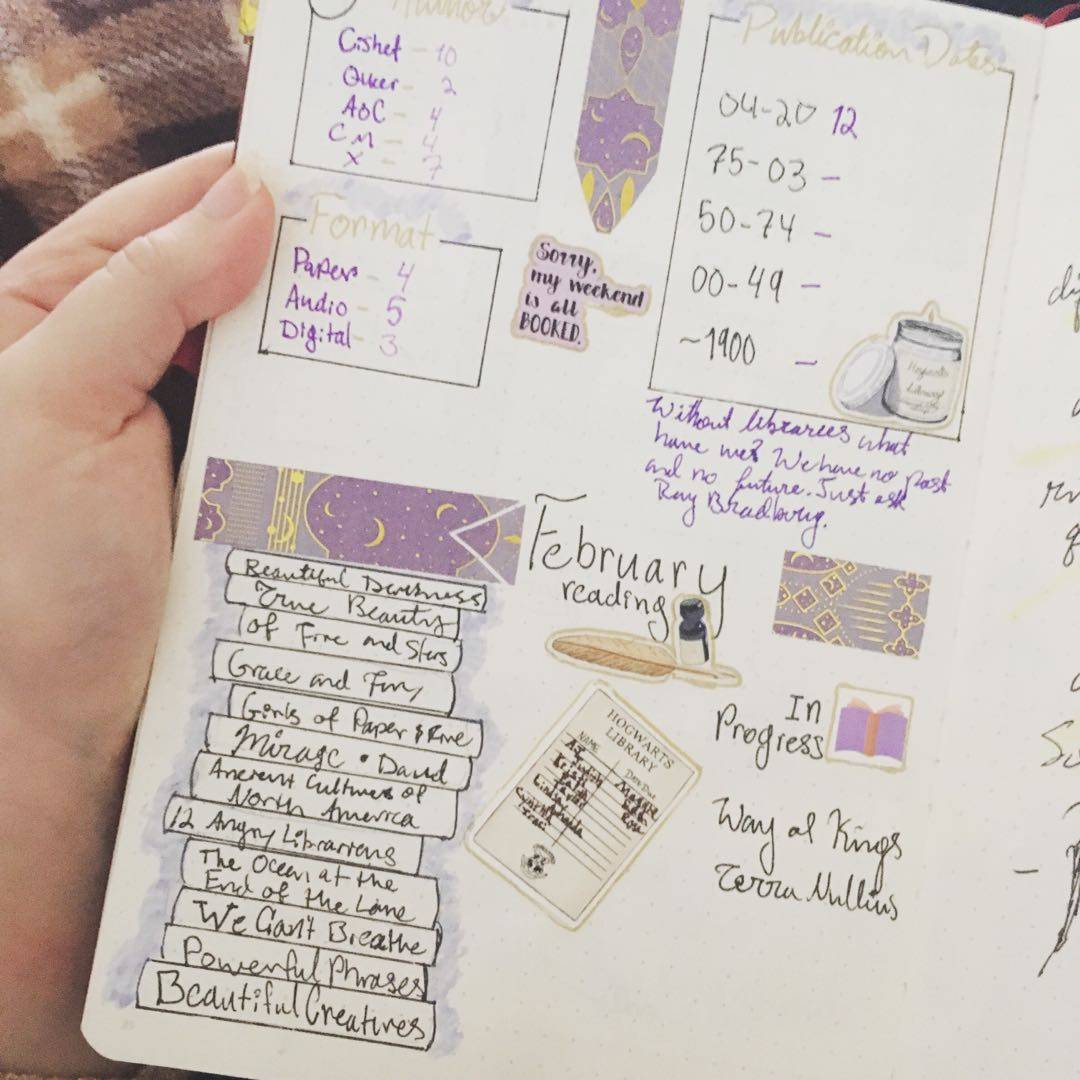 Author
Cishet - 10
Queer - 2
AOC - 4
CM - 4
X - 7
Format
Paper - 4
Audio - 5
Digital - 3
Sorry,
my weekend
is all
BOOKED.
Publication Dates
04-20 12
75-03 -
50-74 -
00-49 -
~1900 -
Hogwarts
Library
Without libraries what
have we? We have no past
and no future. Just ask
Ray Bradbury.
February
reading
Beautiful Darkness
True Beauty
Of Fire and Stars
Grace and Fury
Girls of Paper & Fire
Mirage • David
Ancient Cultures of
North America
12 Angry Librarians
The Ocean at the
End of the Lane
We Can't Breathe
Powerful Phrases
Beautiful Creatures
HOGWARTS
LIBRARY
NAME
DATE DUE
In
Progress
Way of Kings
Terra Nullius